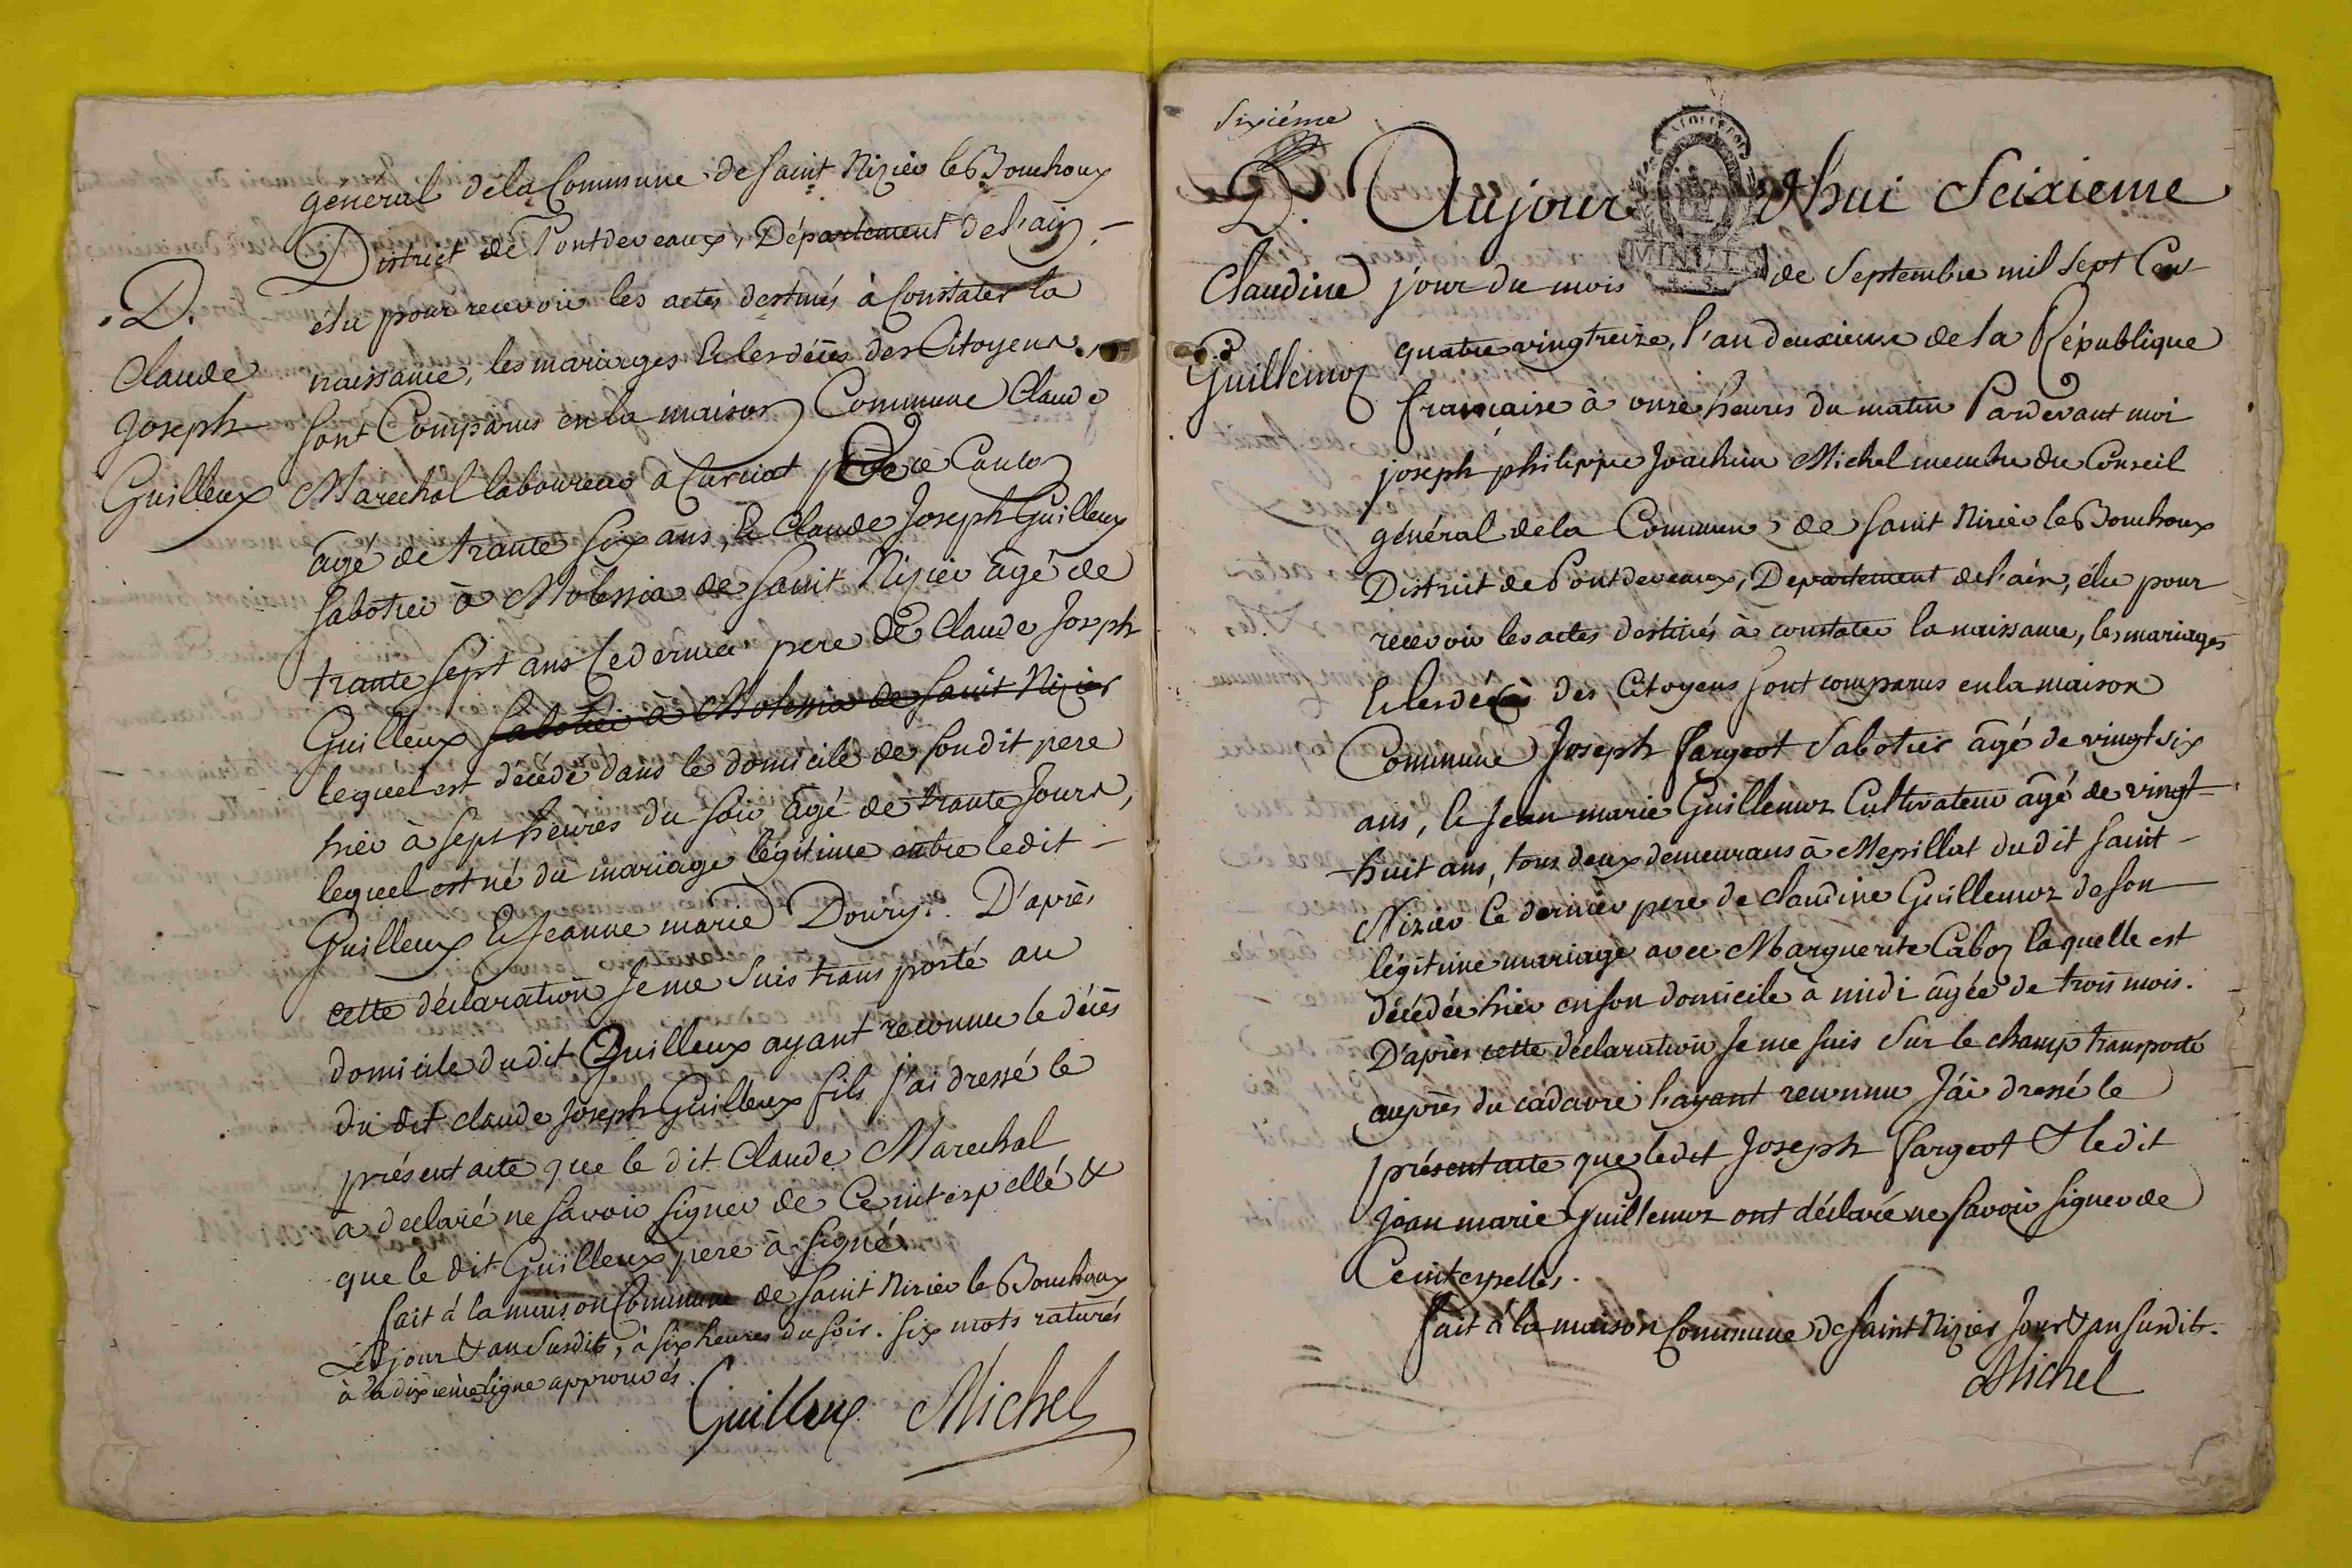 general de la Commune de saint Nizier le Bouchoux
District de Pontdeveaux, Département de l'ain, —
élu pour recevoir les actes destinés à Constater la
D.
naissance, les mariages & les décès des Citoyens.,
Claude
sont Comparus en la maison Commune Claude
Joseph
Marechal laboureur a Curciat
Guilleux
âgé de trante six ans, & Claude Joseph Guilleux
sabotier à Molessia de saint Nizier âgé de
trante sept ans Ce dernier pere de Claude Joseph
Guilleux sabotier à Molessia de saint Nizier
lequel est décédé dans le domicile de son dit pere
hier à sept heures du soir âgé de trante Jours,
lequel est né du mariage légitime entre ledit —
Guilleux & Jeanne marie Doury. D'après
cette déclaration Je me suis transporté au
domicile dudit Guilleux ayant reconnu le décès
du dit claude Joseph Guilleux fils j'ai dressé le
présent acte que le dit Claude Marechal
a declaré ne savoir signer de Ce interpellé &
que le dit Guilleux pere à signé.
fait à la maison Commune de saint Nizier le Bouchoux
Les jour & an susdits, à six heures du soir. six mots raturés
à la dixième ligne approuvés.
Guilleux Michel
Sixiéme
D.
Claudine
Guillemoz
Aujourd'hui Seixieme
MINUTE
jour du mois de Septembre mil Sept Cent
quatre vingt treize, l'an deuxieme de la République
francaise à onze heures du matin Pardevant moi
joseph philippe Joachim Michel membre du Conseil
général de la Commune de saint Nizier le Bouchoux
District de Pontdeveaux, Departement de l'ain, élu pour
recevoir les actes destinés à constater la naissance, les mariages
& les décès des Citoyens sont comparus en la maison
Commune Joseph fargeot Sabotier âgé de vingt six
ans, & Jean marie Guillemoz Cultivateur âgé de vingt
huit ans, tous deux demeurans à Mepillat dudit saint —
Nizier Ce dernier pere de claudine Guillemoz de son
légitime mariage avec Marguerite Caboz laquelle est
décédée hier en son domicile à midi âgée de trois mois.
D'après cette déclaration Je me suis sur le champ transporté
auprès du cadavre l'ayant reconnu J'ai dressé le
présent acte que ledit Joseph fargeot & le dit
jean marie Guillemoz ont déclaré ne savoir signer de
Ce interpellés.
fait à la maison Commune de saint Nizier Jour & an susdits.
Michel